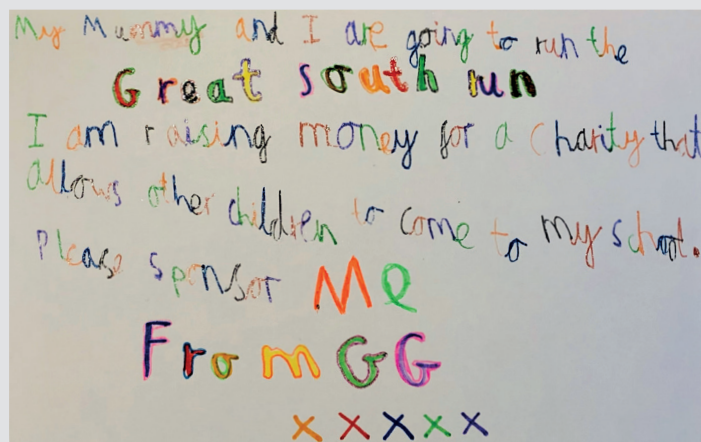 My Mummy and I are going to run the
Great south run
I am raising money for a Charity that
allows other children to come to my school.
Please sponsor Me
From GG
x x x x x